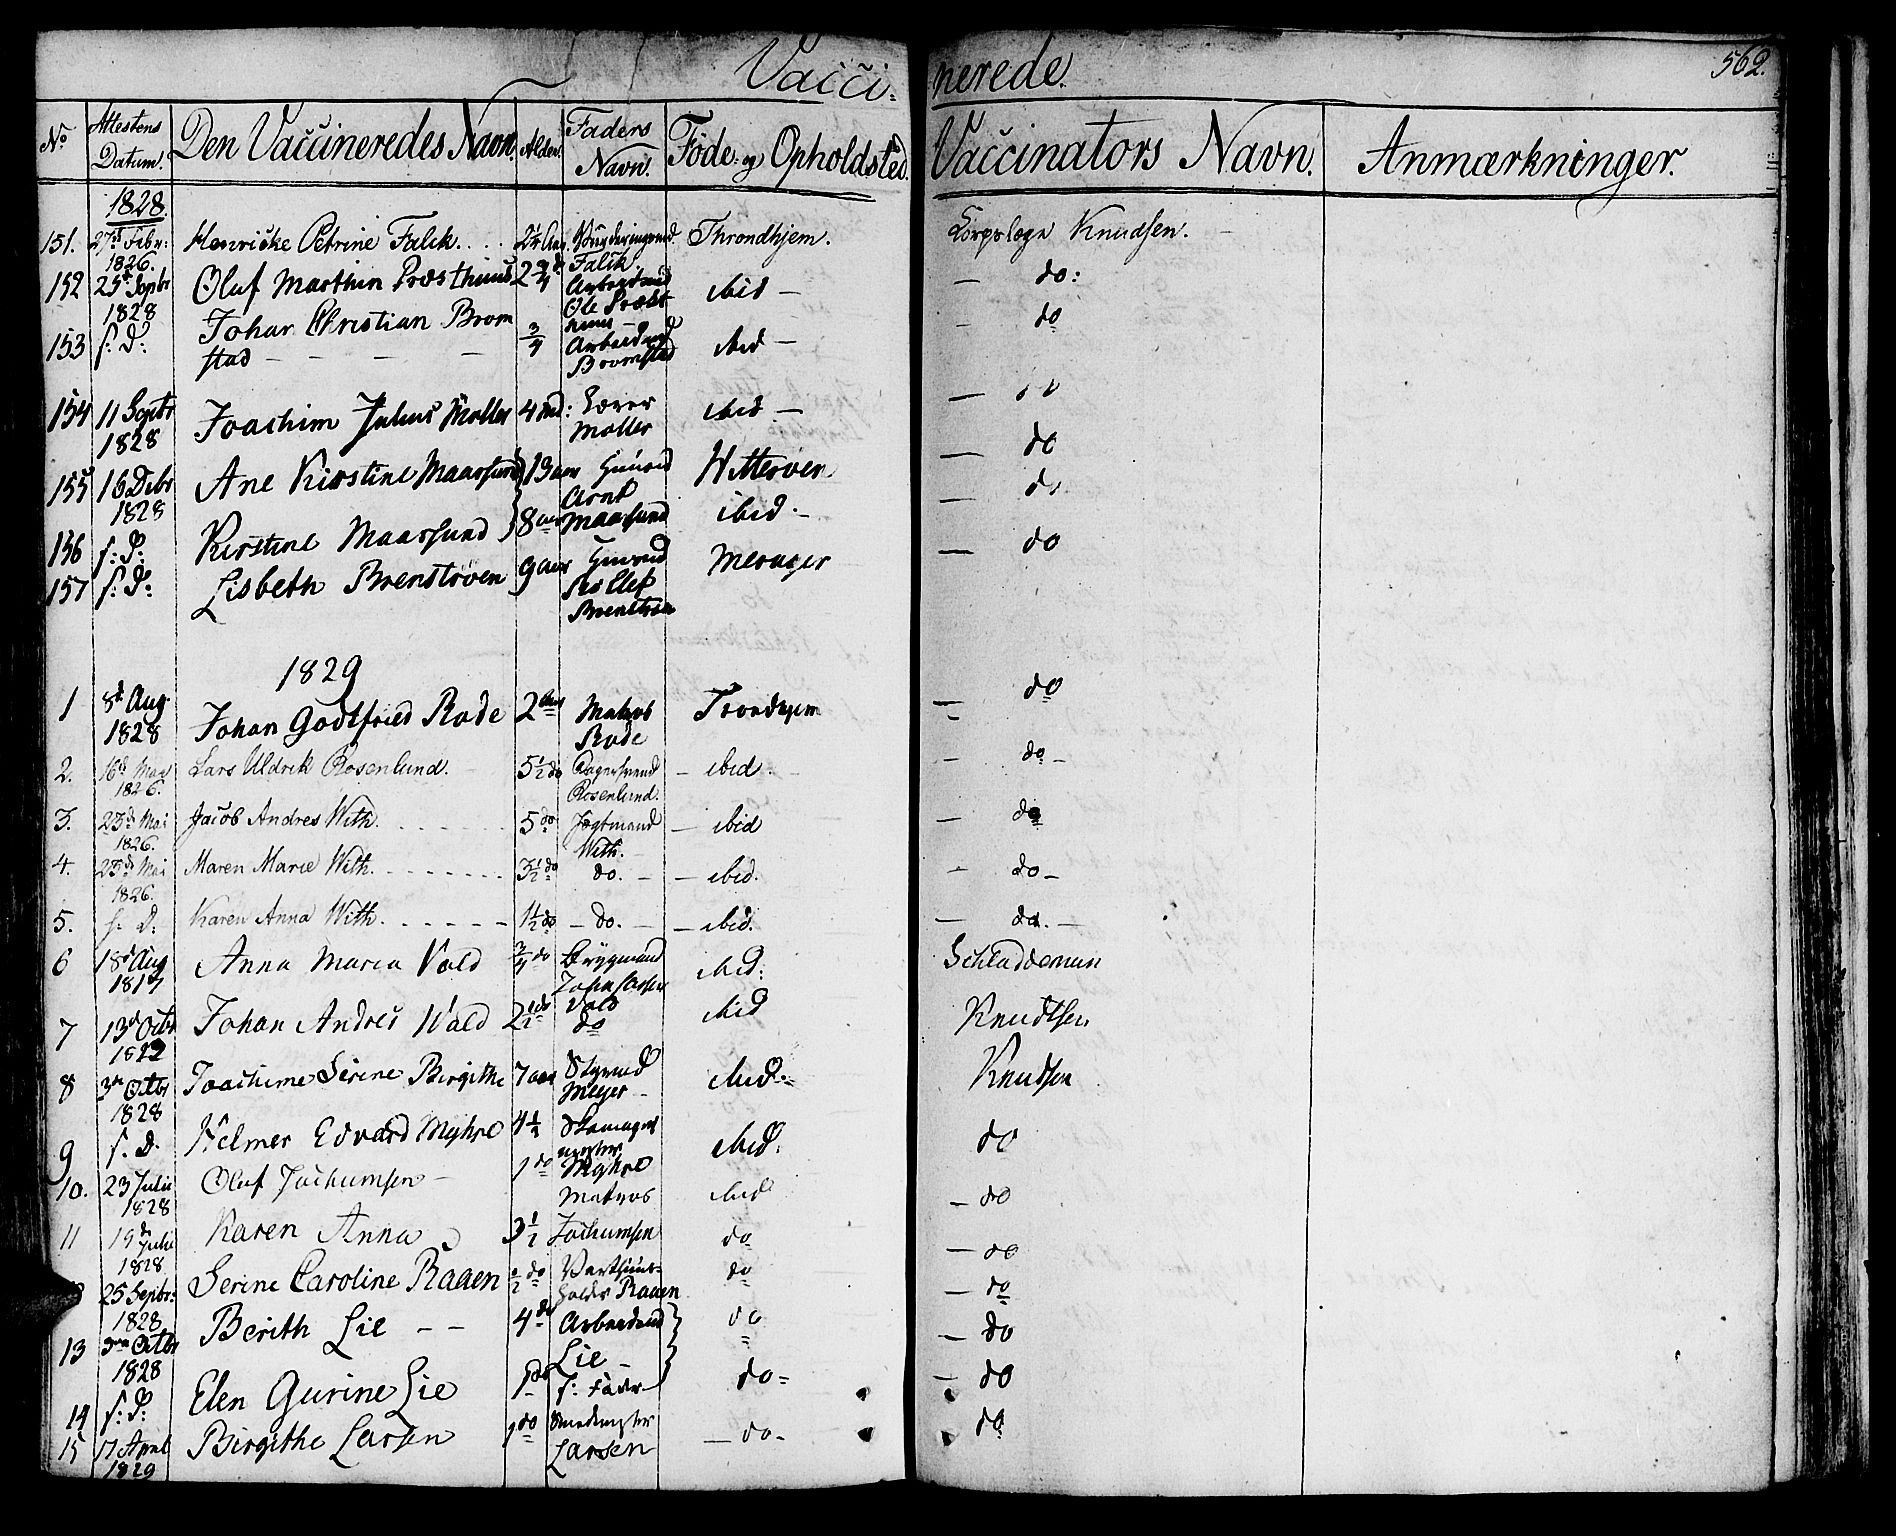 Vacci=nerede. 562.
No Attestens Datum. Den Vaccineredes Navn. Alder. Faders Navn. Föde- og Opholdsted. Vaccinators Navn. Anmærkninger.
1828.
151. 27d Febr: 1826. Henricke Petrine Falck.... 2¼ Aar Falck Throndhjem. Corpslæge Knudsen.
152 25d Septbr 1828 Oluf Marthin Præsthuus Arbeidsmd Ole Præst huus ibid — — do:
153 f: D: Johan Christian Brom stad — — — — ¾ Arbeidsmd Bromstad ibid — — do
154 11 Septbr 1828 Joachim Julius Møller 4 Md: Møller ibid — —
155 16 Debr 1828 Ane Kirstine Maarsund 13 aar Huusmd Arnt Maarsund Hitteröen — do
156 f: D: Kirstine Maarsund 8 aar ibid. — do
157 f: D: Lisbeth Brenströen 9 aar Huusmd Merager — do
1829
1 8d Aug 1828 Johan Godtfried Rode 2 Aar Matros Rode Trondhjem — do
2. 16d Mai 1826. Lars Uldrik Rosenlund. 5½ do Rosenlund. — ibid. — do —
3. 23d Mai 1826. Jacob Andres With. 5 do Jægtmand With. — ibid — do
4. 23d Mai 1826. Maren Marie With. 3½ do do. — — ibid. — do —
5. f. D: Karen Anna With. 1½ do — do. — — ibid. — do. —
6 18d Aug 1817 Anna Maria Vald ¾ do Brygmand Vald ibid: Schladdeman
7 13d Octbr 1822 Johan Andres Wald 2½ do do ibid Knudtsen
8 3die Octbr 1828 Joachime Serine Birgithe 7 aar Styrmd Meyer — ibid.= Knudsen
9 f. D. Helmer Edvard Myhre 4½ Myhre ibid: do
10. 23 Julii 1828 Oluf Jochumsen — 1 do Matros Jochumsen ibid — do
11 19de Julii 1828 Karen Anna 3½ do — do
25 Septbr: 1828 Serine Caroline Raaen ½ do Værtshuus-holder Raaen do — do
13 3die Octbr 1828 Berith Lie — — 4 do Arbeidsmd Lie — do — do
14 f: D: Elen Gurine Lie 1 do f: Fader do= — do
15 17 April 1829 Birgithe Larsen 1 do Larsen — do- do